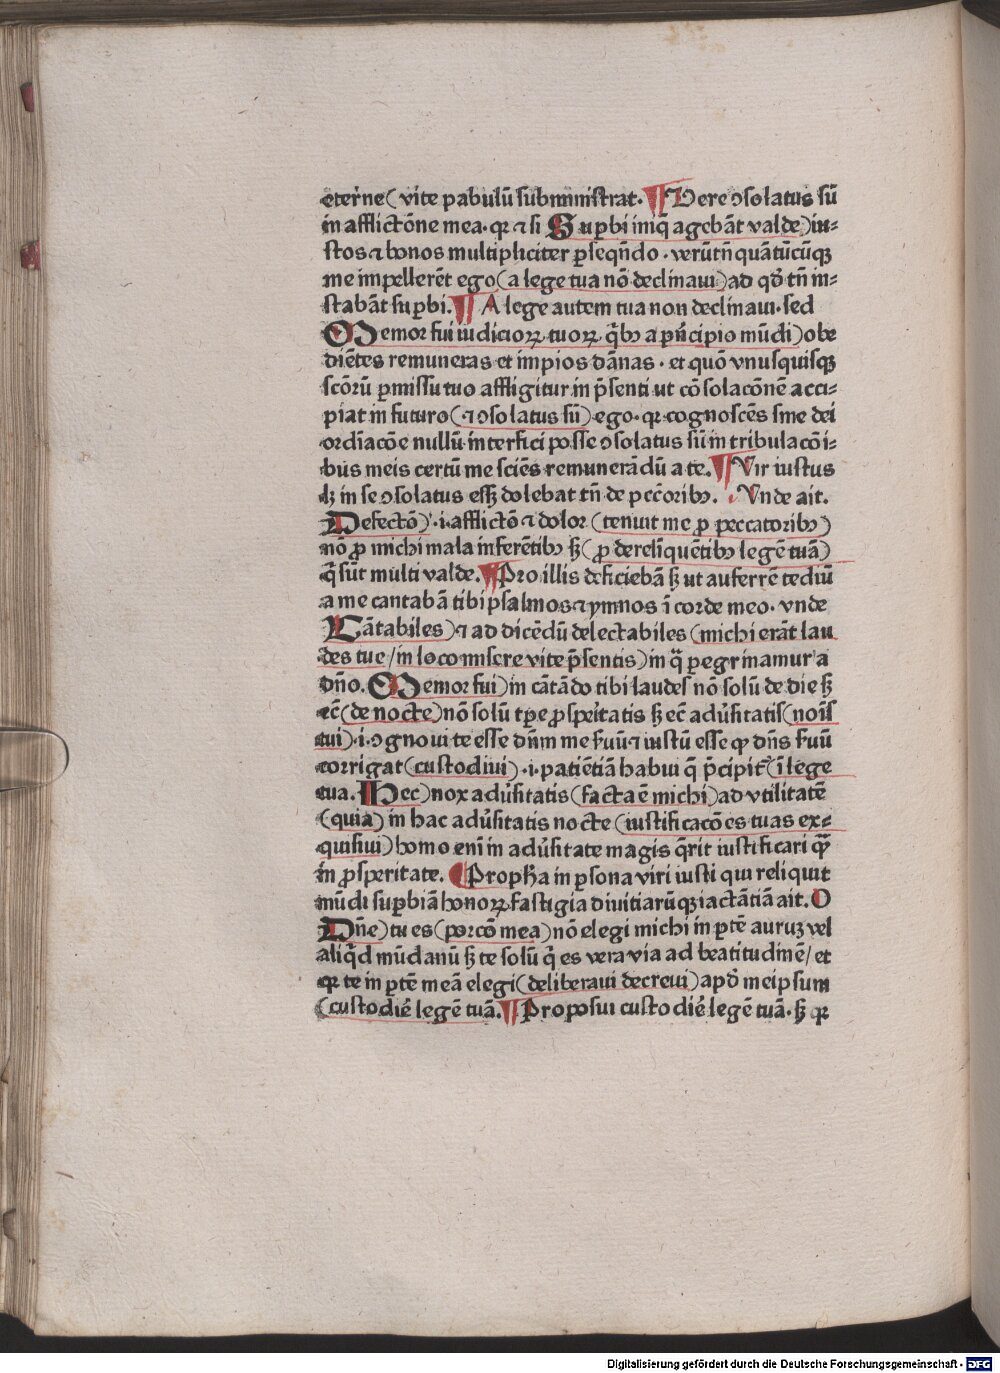 eterne (vite pabulū subministrat. ¶ Vere ↄsolatus sū
in afflictōne mea. qꝛ ⁊ si Suꝑbi iniq̄ agebāt valde) iu⸗
stos ⁊ bonos multipliciter ꝑseqn̄do. verūtn̄ quātūcūqꝫ
me impellerēt ego (a lege tua nō declinaui) ad qd̄ tn̄ in⸗
stabāt suꝑbi. ¶ A lege autem tua non declinaui. sed
Memor fui iudicioꝝ tuoꝝ q̄bꝫ a pn̄cipio mūdi) obe
diētes remuneras et impios dānas. et quō vnusquisqꝫ
scōrū ꝑmissu tuo affligitur in p̄senti ut cōsolacōnē acci⸗
piat in futuro (⁊ ↄsolatus sū) ego. qꝛ cognoscēs sine dei
ordīacōe nullū interfici posse ↄsolatus sū in tribulacōi⸗
bus meis certū me sciēs remunerādū a te. ¶ Vir iustus
lꝫ in se ↄsolatus essꝫ dolebat tn̄ de pcc̄oribꝫ. Vnde ait.
Defectō) .i. afflictō ⁊ dolor (tenuit me ꝓ peccatoribꝫ)
nō ꝓ michi mala inferētibꝫ sꝫ (ꝓ derelinquētibꝫ legē tuā)
q̄ sūt multi valde. ¶ Pro illis deficiebā sꝫ ut auferrē tediū
a me cantabā tibi psalmos ⁊ ymnos ī corde meo. vnde
Cātabiles) ⁊ ad dicēdū delectabiles (michi erāt lau
des tue / in loco miserevite p̄sentis) in q̄ ꝑegrinamur a
dn̄o. Memor fui) in cātādo tibi laudes nō solū de die sꝫ
ec̄ (de nocte) nō solū tꝑe ꝓsperitatis sꝫ ec̄ adūsitatis (noīs
tui) .i. ↄgnoui te esse dn̄m me ẜuū ⁊ iustū esse qꝙ dn̄s ẜuū
corrigat (custodiui) .i. patiētiā habui q̄ p̄cipit (ī lege
tua. Hec) nox adūsitatis (facta ē michi) ad vtilitatē
(quia) in hac adūsitatis nocte (iustificacōes tuas ex⸗
quisiui) homo enī in adūsitate magis q̄rit iustificari qꝫ̄
in ꝓsperitate. ¶ Propħa in ꝑsona viri iusti qui reliquit
mūdi suꝑbiā honoꝝ fastigia diuitiarūqꝫ iactātiā ait. O
Dn̄e) tu es (porcō mea) nō elegi michi in ꝑtē auruꝫ vel
aliq̄d mūdanū sꝫ te solū q̄ es vera via ad beatitudinē / et
qꝛ te in ꝑtē meā elegi (deliberaui decreui) apd̄ meipsum
(custodiē legē tuā. ¶ Proposui custodiē legē tuā. sꝫ qꝛ
Digitalisierung gefördert durch die Deutsche Forschungsgemeinschaft - DFG